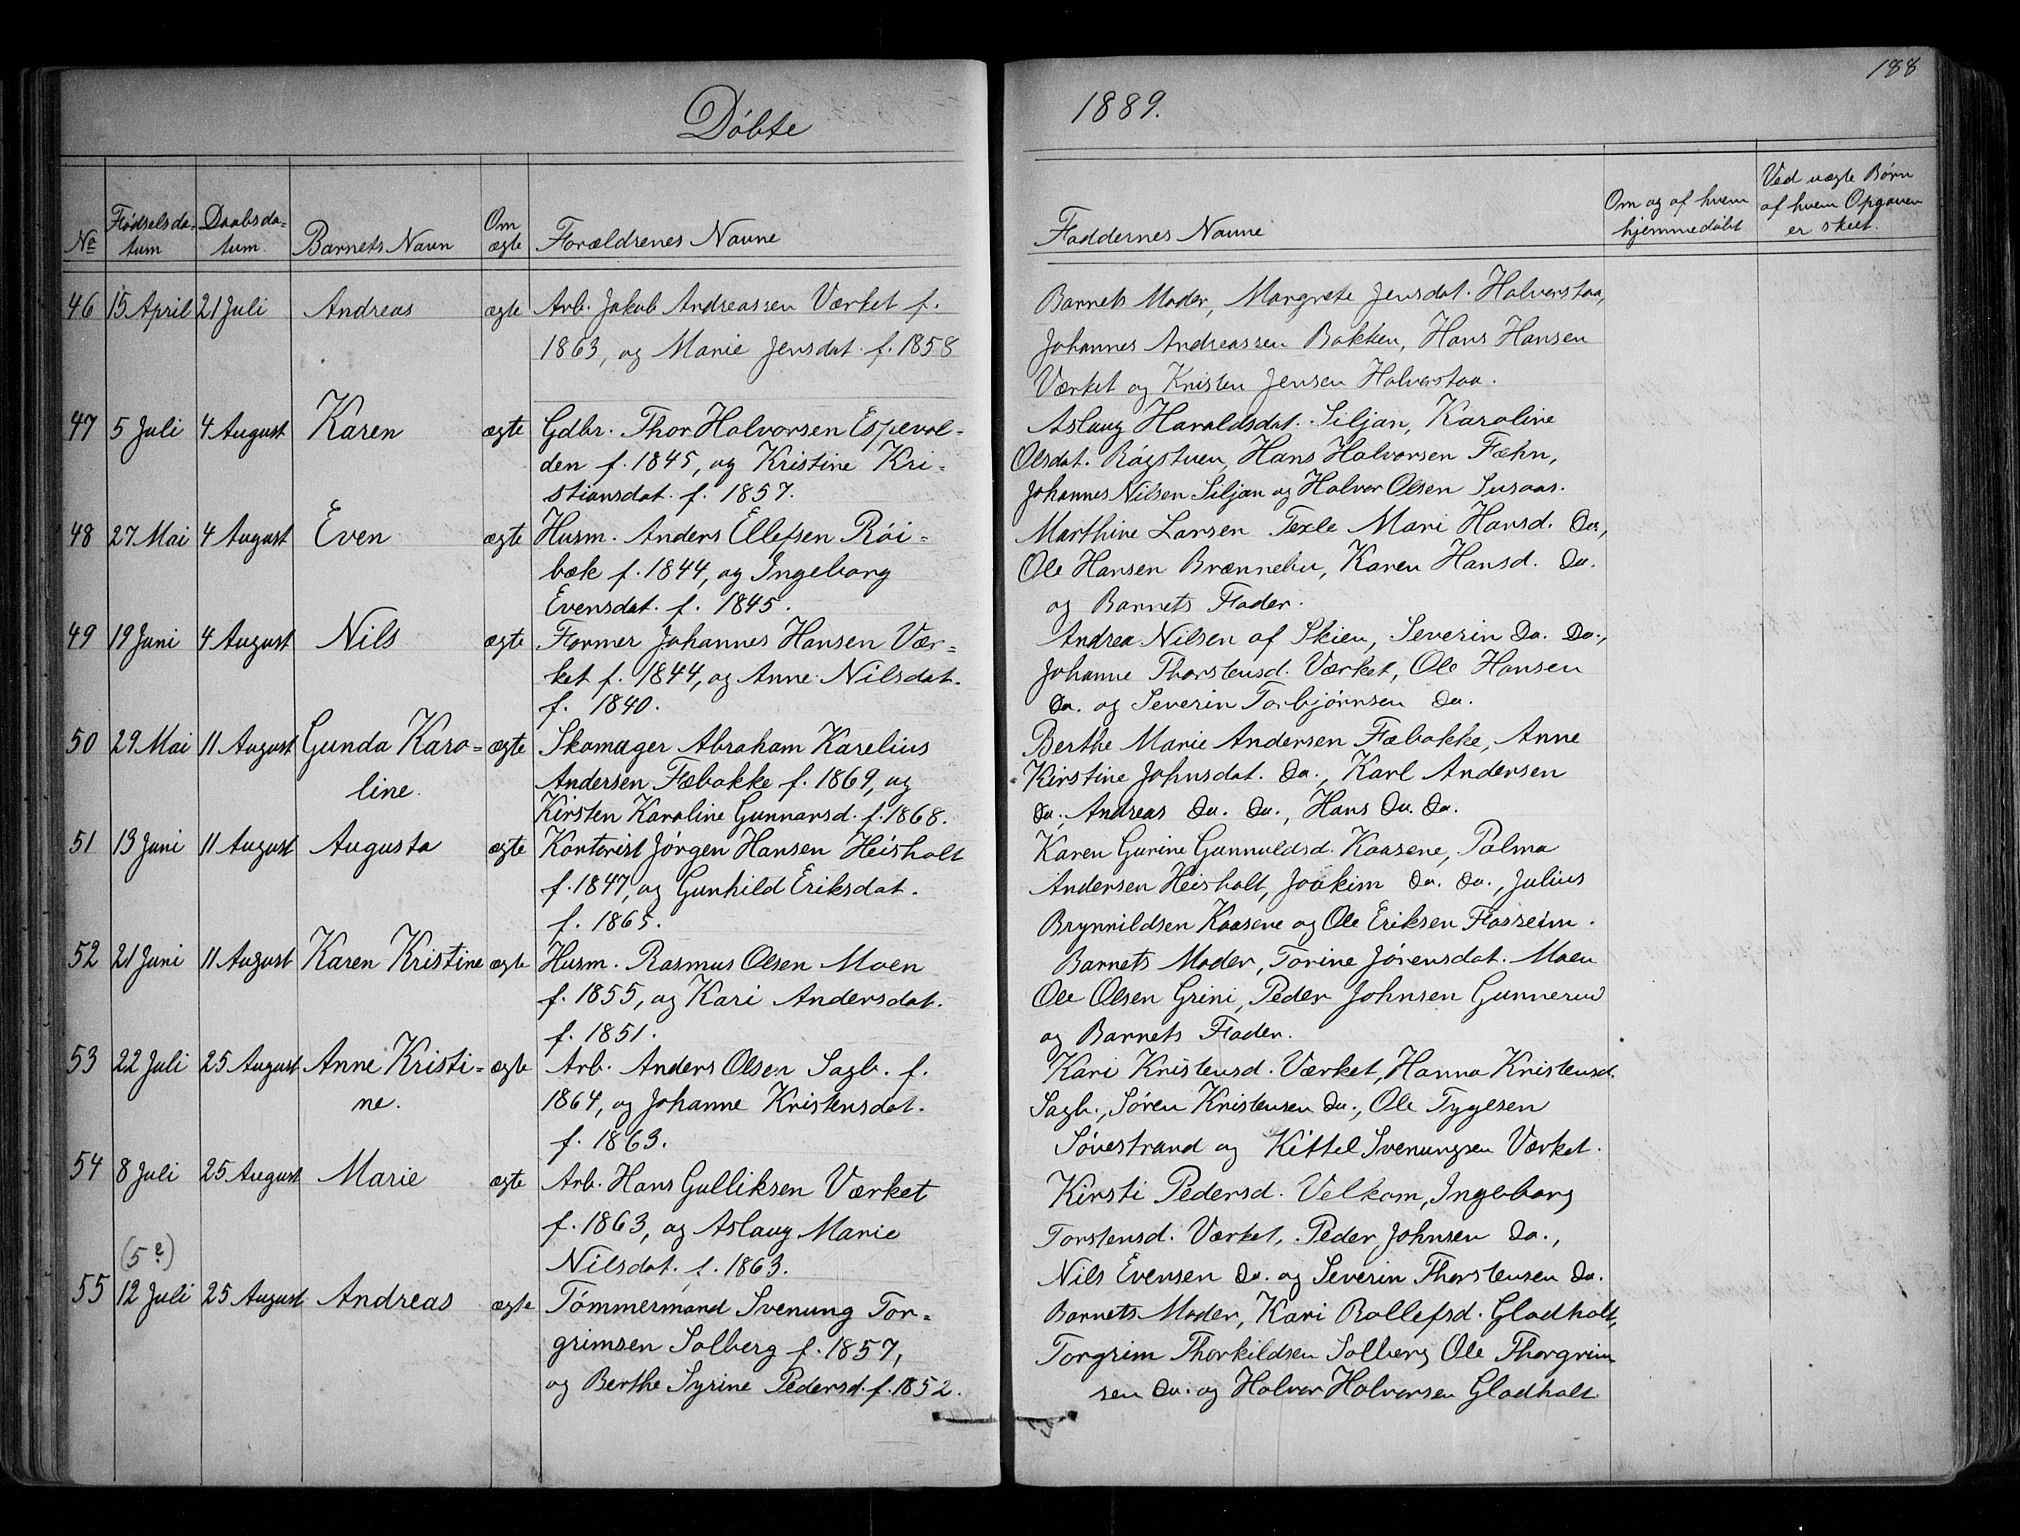 188
Döbte
1889.
No
Födselsda-
tum
Daabsda-
tum.
Barnets Navn
Om
ægte
Forældrenes Navne
Faddernes Navne
Om og af hvem
hjemmedöbt
Ved uægte Børn
af hvem Opgaven
er skeet.
46 15 April 21 Juli Andreas ægte Arb. Jakob Andreassen Værket f.
1863, og Marie Jensdat. f. 1858
Barnets Moder, Margrete Jensdat. Halverstaa,
Johannes Andreassen Bakken, Hans Hansen
Værket og Kristen Jensen Halverstaa.
47 5 Juli 4 August Karen ægte Gdbr. Thor Halvorsen Espevol-
den f. 1845, og Kristine Kri-
stiansdat. f. 1857.
Aslaug Haraldsdat. Siljan, Karoline
Olsdat. Rögstuen, Hans Halvorsen Fæhn,
Johannes Nilsen Siljan og Halvor Olsen Susaas.
48 27 Mai 4 August Even ægte Husm. Anders Ellefsen Röi-
bæk f. 1844, og Ingeborg
Evensdat. f. 1845.
Marthine Larsen Texle Mari Hansd. Do.,
Ole Hansen Brænnebu, Karen Hansd. Do.
og Barnets Fader.
49 19 Juni 4 August Nils ægte Former Johannes Hansen Vær-
ket f. 1844, og Anne Nilsdat.
f. 1840.
Andrea Nilsen af Skien, Severin Do. Do.,
Johanne Thorstensd. Værket, Ole Hansen
Do. og Severin Torbjørnsen Do.
50 29 Mai 11 August Gunda Karo- ægte Skomager Abraham Karelius
line.
Andersen Fæbakke f. 1869, og
Kirsten Karoline Gunnarsd. f. 1868.
Berthe Marie Andersen Fæbakke, Anne
Kirstine Johnsdat. Do., Karl Andersen
Do., Andreas Do. Do., Hans Do. Do.
51 13 Juni 11 August Augusta ægte Kontorist Jørgen Hansen Heisholt
f. 1847, og Gunhild Eriksdat.
f. 1865.
Karen Gurine Gunnuldsd. Kaasene, Palma
Andersen Heisholt, Joakim Do. Do., Julius
Brynnildsen Kaasene og Ole Eriksen Flasseim.
52 21 Juni 11 August Karen Kristine ægte Husm. Rasmus Olsen Moen
f. 1855, og Kari Andersdat.
f. 1851.
Barnets Moder, Torine Jørensdat. Moen
Ole Olsen Grini, Peder Johnsen Gunnerud
og Barnets Fader.
53 22 Juli 25 August Anne Kristi- ægte Arb. Anders Olsen Sagb. f.
ne.
1864, og Johanne Kristensdat.
f. 1863.
Kari Kristensd. Værket, Hanna Kristensd.
Sagb., Sören Kristensen Do., Ole Tygesen
Sövestrand og Kittel Svenungsen Værket.
54 8 Juli 25 August Marie ægte Arb. Hans Gulliksen Værket
f. 1863, og Aslaug Marie
Nilsdat. f. 1863.
Kirsti Pedersd. Velkom, Ingeborg
Torstensd. Værket, Peder Johnsen Do.,
Nils Evensen Do. og Severin Thorstensen Do.
(5?)
55 12 Juli 25 August Andreas ægte Tömmermand Svenung Tor-
grimsen Solberg f. 1857,
og Berthe Syrine Pedersd. f. 1852.
Barnets Moder, Kari Rollefsd. Gladhalt,
Torgrim Thorkildsen Solberg Ole Thorgrim
sen Do. og Halvor Halvorsen Gladhalt.